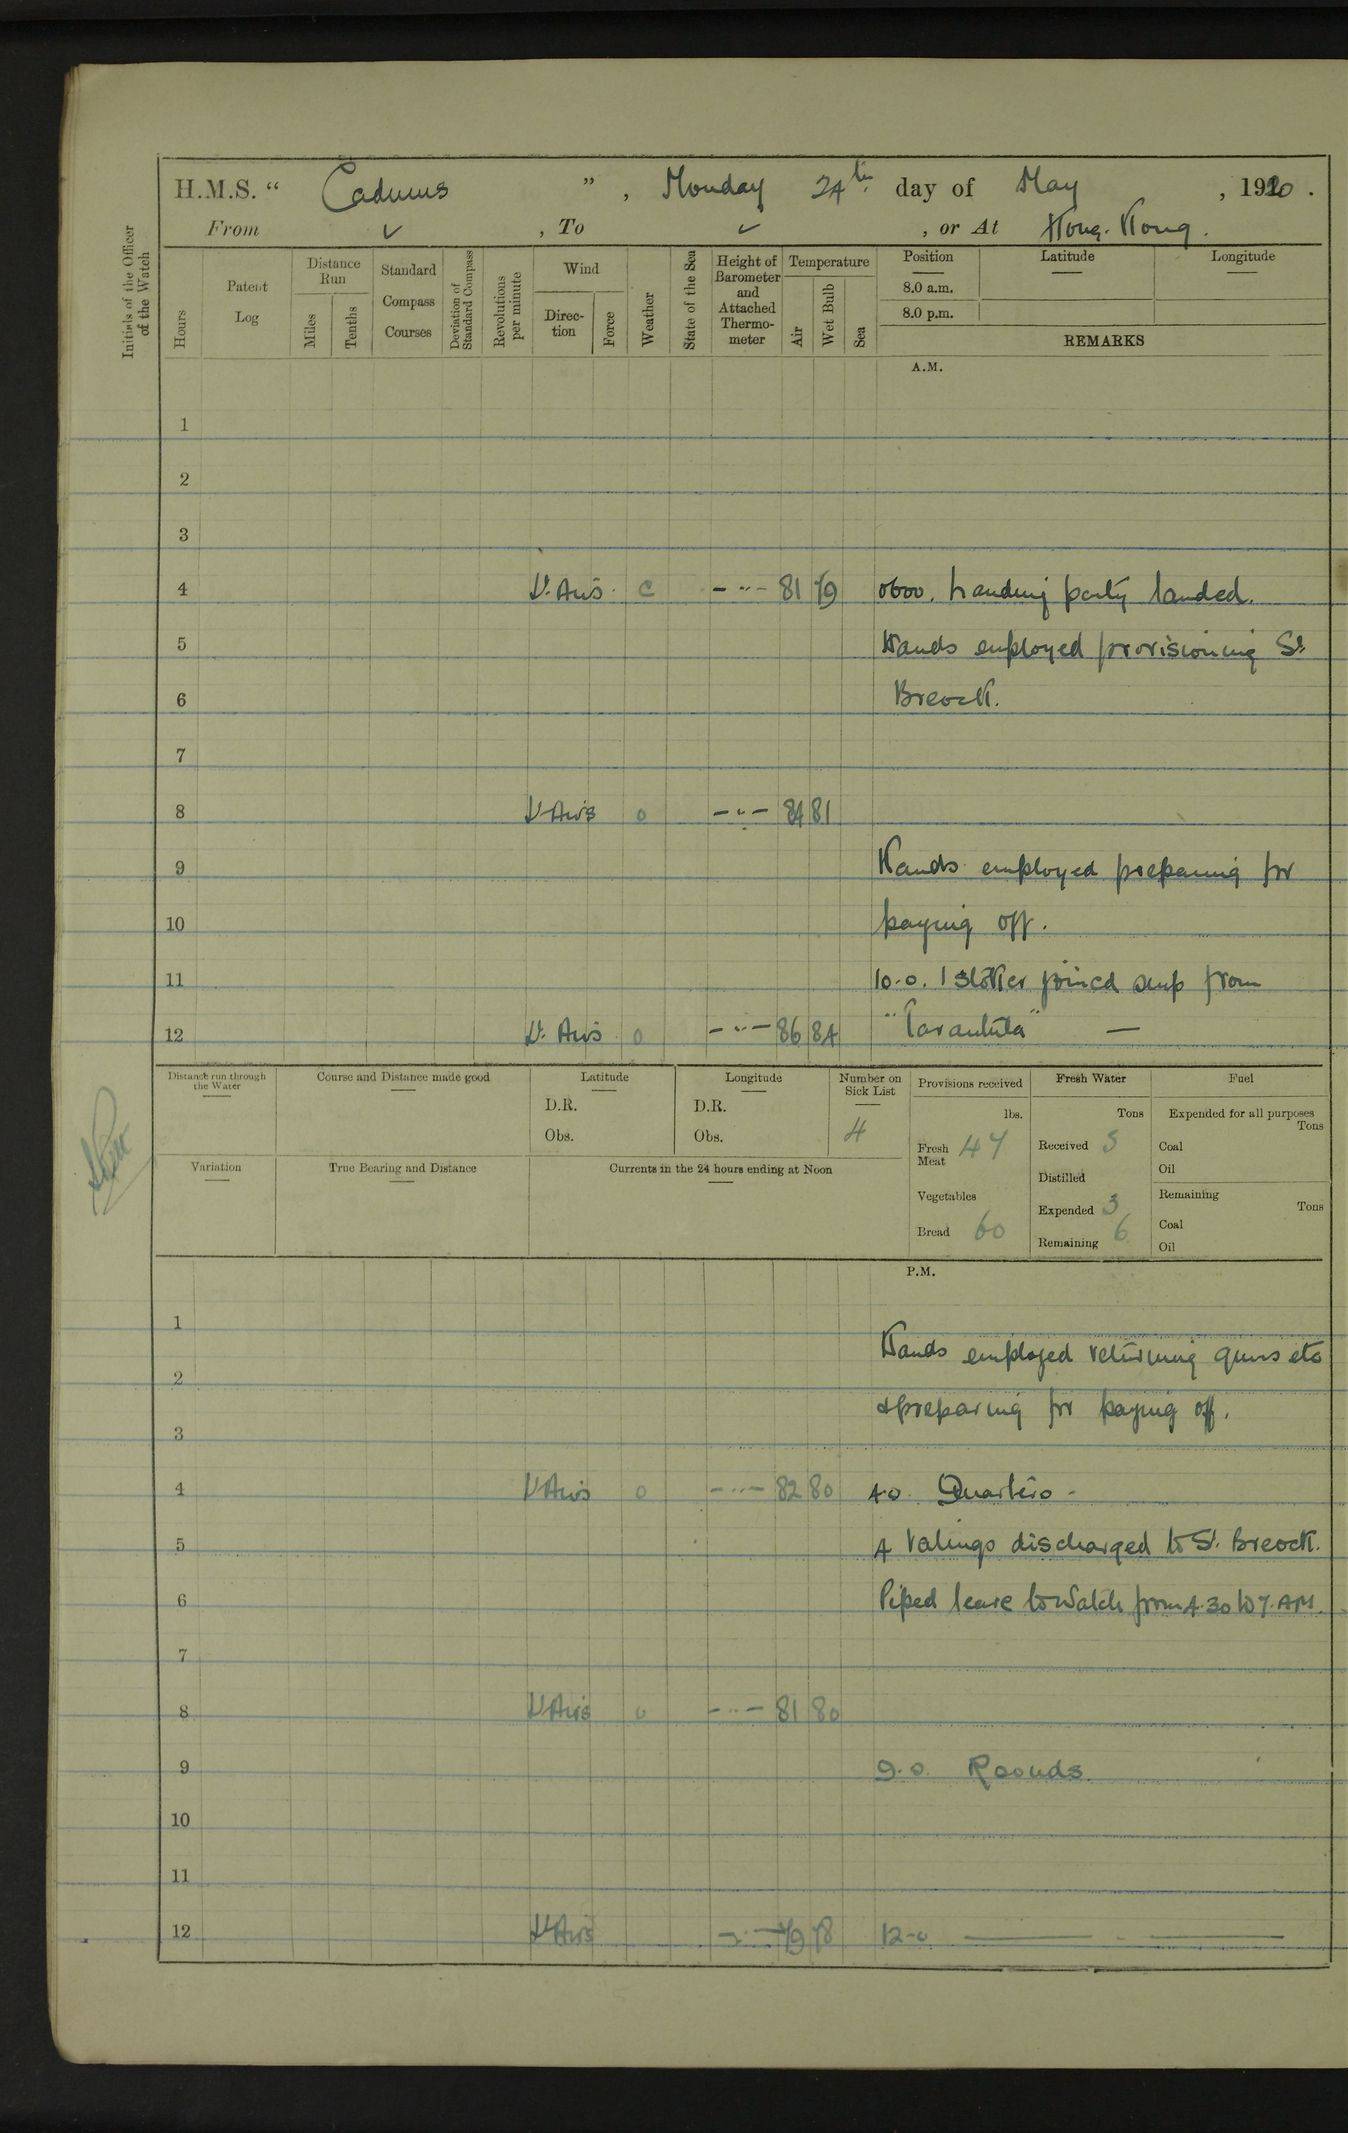 H.M.S. “ Cadmus ” , Monday 24th day of May , 1920 .
From ✓ , To ✓ , or At Hong-Kong .
Initials of the Officer of the Watch
Hours
Patent Log
Distance Run
Miles
Tenths
Standard Compass Courses
Deviation of Standard Compass
Revolutions per minute
Wind
Direction
Force
Weather
State of the Sea
Height of Barometer and Attached Thermometer
Temperature
Air
Wet Bulb
Sea
Position Latitude Longitude
8.0 a.m.
8.0 p.m.
REMARKS
A.M.
1
2
3
4 Lt Airs c – ... – 81 79 0600. Landing party landed.
5 Hands employed provisioning St
6 Breock.
7
8 Lt Airs o – .. – 84 81
9 Hands employed preparing for
10 paying off.
11 10.0. 1 stoker joined ship from
12 Lt Airs o – ... – 86 84 "Tarantula" —
Distance run through the Water
Course and Distance made good
Latitude
D.R.
Obs.
Longitude
D.R.
Obs.
Number on Sick List
4
Provisions received
lbs.
Fresh Meat 47
Vegetables
Bread 60
Fresh Water
Tons
Received 5
Distilled
Expended 3
Remaining 6
Fuel
Expended for all purposes
Tons
Coal
Oil
Remaining
Tons
Coal
Oil
Variation
True Bearing and Distance
Currents in the 24 hours ending at Noon
P.M.
1
Hands employed returning guns etc
2
& preparing for paying off.
3
4 Lt Airs o – ... – 82 80 4.0 Quarters -
5 4 ratings discharged to St. Breock.
6 Piped leave to Watch from 4.30 to 7. AM.
7
8 Lt Airs o – ... – 81 80
9 9.0. Rounds.
10
11
12 Lt Airs – ... – 79 78 12-0 — - —